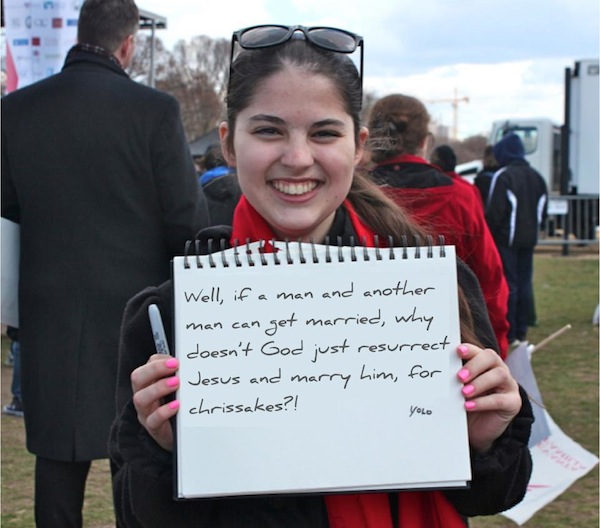 Well, if a man and another
man can get married, why
doesn't God just resurrect
Jesus and marry him, for
chrissakes?!
YOLO